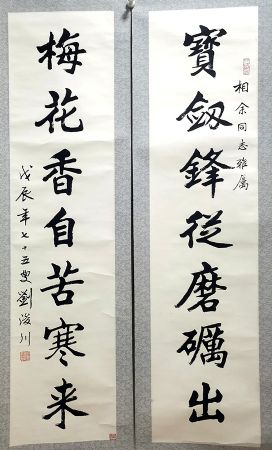 寶劔鋒從磨礪出
相余同志雅属
梅花香自苦寒来
戊辰年七十五叟劉浚川